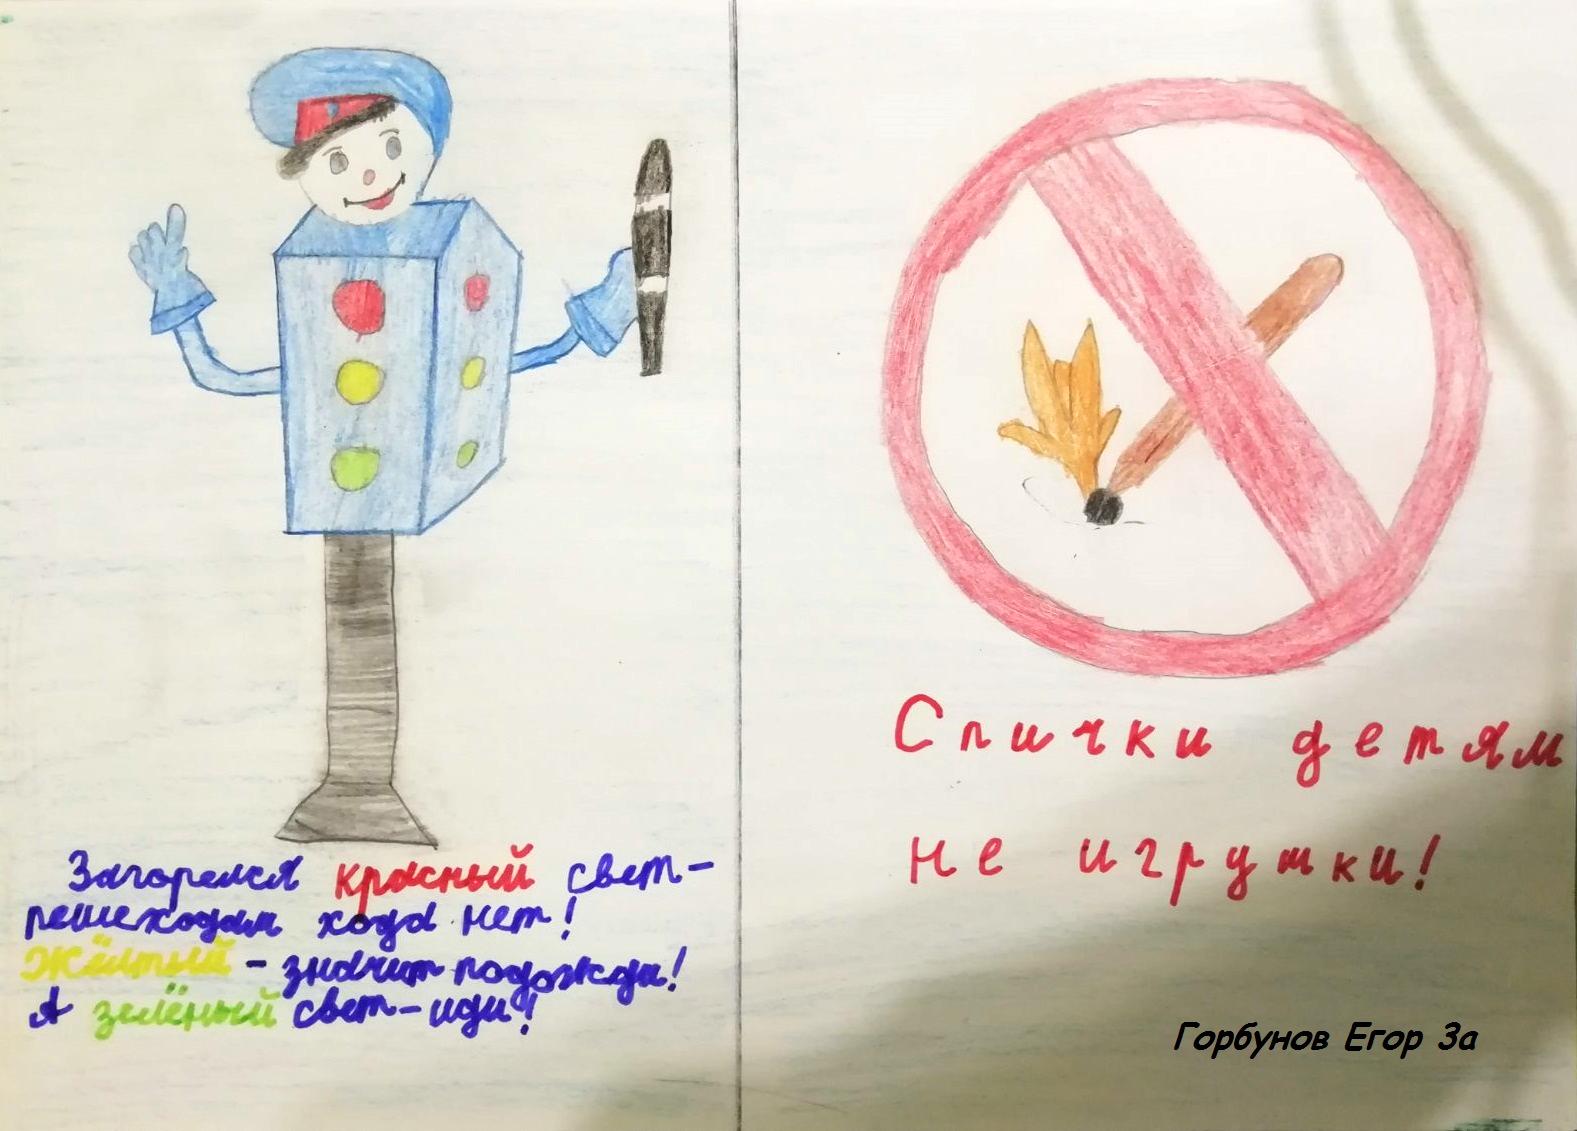 Загорелся красный свет-
пешеходам хода нет!
Жёлтый - значит подожди!
А зелёный свет-иди!
Спички детям
не игрушки!
Горбунов Егор 3а